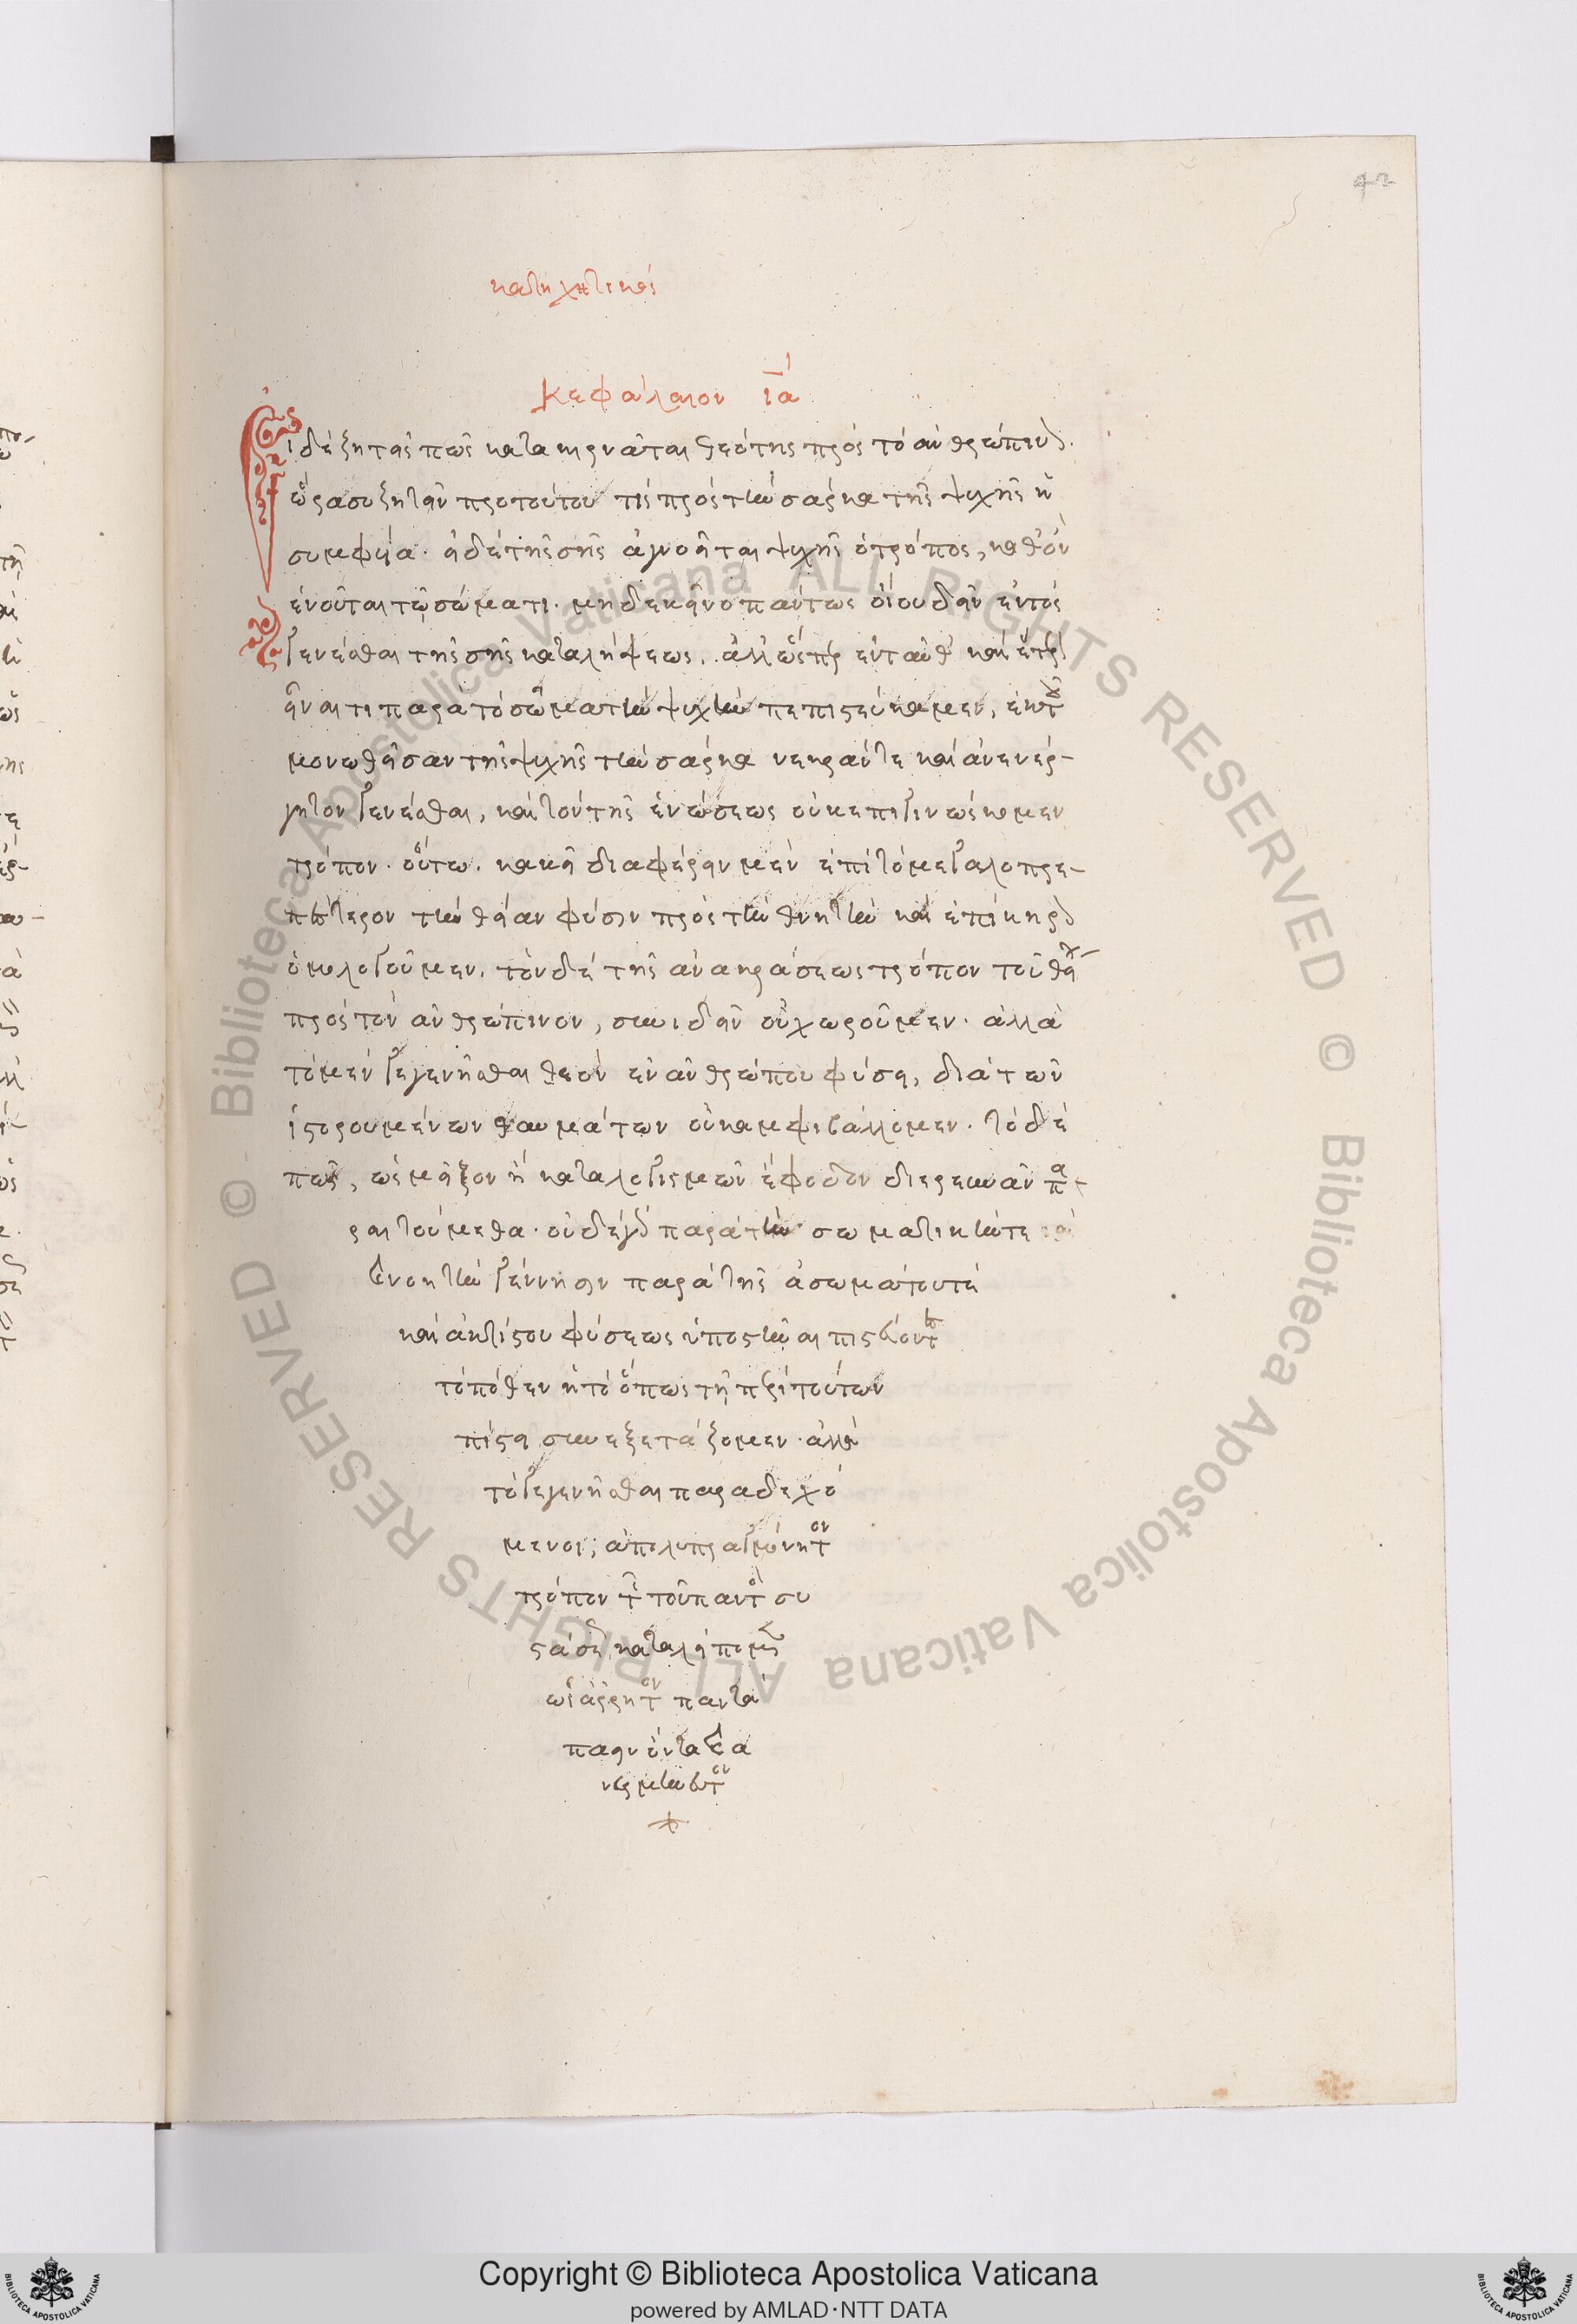 42
κατηχητικός
Κεφάλαιον ια
Εἰ δὲ ζητεῖς πῶς κατακιρνᾶται θεότης πρὸς τὸ ἀνθρώπινον.
ὥρα σοι ζητεῖν πρὸ τούτου τίς πρὸς τὴν σάρκα τῆς ψυχῆς ἡ
συμφυΐα. εἰ δὲ τῆς σῆς ἀγνοεῖται ψυχῆς ὁ τρόπος, καθ' ὃν
ἑνοῦται τῷ σώματι. μηδὲ κεῖνο πάντως οἴου δεῖν ἐντὸς
γενέσθαι τῆς σῆς καταλήψεως. ἀλλ' ὥσπερ ἐνταῦθα καὶ ἕτερον
εἶναί τι παρὰ τὸ σῶμα τὴν ψυχὴν πεπιστεύκαμεν, ἐκ τοῦ
μονωθεῖσαν τῆς ψυχῆς τὴν σάρκα νεκράν τε καὶ ἀνενέρ-
γητον γενέσθαι, καὶ τὸν τῆς ἑνώσεως οὐκ ἐπιγινώσκομεν
τρόπον. οὕτω. κακεῖ διαφέρειν μὲν ἐπὶ τὸ μεγαλοπρε-
πέστερον τὴν θείαν φύσιν πρὸς τὴν θνητὴν καὶ ἐπίκηρον
ὁμολογοῦμεν. τὸν δὲ τῆς ἀνακράσεως τρόπον τοῦ θείου
πρὸς τὸν ἀνθρώπινον, συνιδεῖν οὐ χωροῦμεν. ἀλλὰ
τὸ μὲν γεγενῆσθαι θεὸν ἐν ἀνθρώπου φύσει, διὰ τῶν
ἱστορουμένων θαυμάτων οὐκ ἀμφιβάλλομεν. τὸ δὲ
πῶς, ὡς μεῖζον ἢ κατὰ λογισμῶν ἔφοδον διερευνᾶν πα-
ραιτούμεθα. οὐδὲ γὰρ παρὰ τὴν σωματικήν τε καὶ
ἐννοητὴν γέννησιν παρὰ τῆς ἀσωμάτου τε
καὶ ἀκτίστου φύσεως ὑποστῆναι πιστεύοντες
τὸ πόθεν ἢ τὸ ὅπως τῇ περὶ τούτων
πίστει συνεξετάζομεν. ἀλλὰ
τὸ γεγενῆσθαι παραδεχό
μενοι, ἀπολυπραγμόνητον
τρόπον τῆς τοῦ παντὸς συ
στάσεως καταλείπομεν
ὡς ἄρρητον παντά
πασιν ὄντα καὶ ἀ
νερμήνευτον